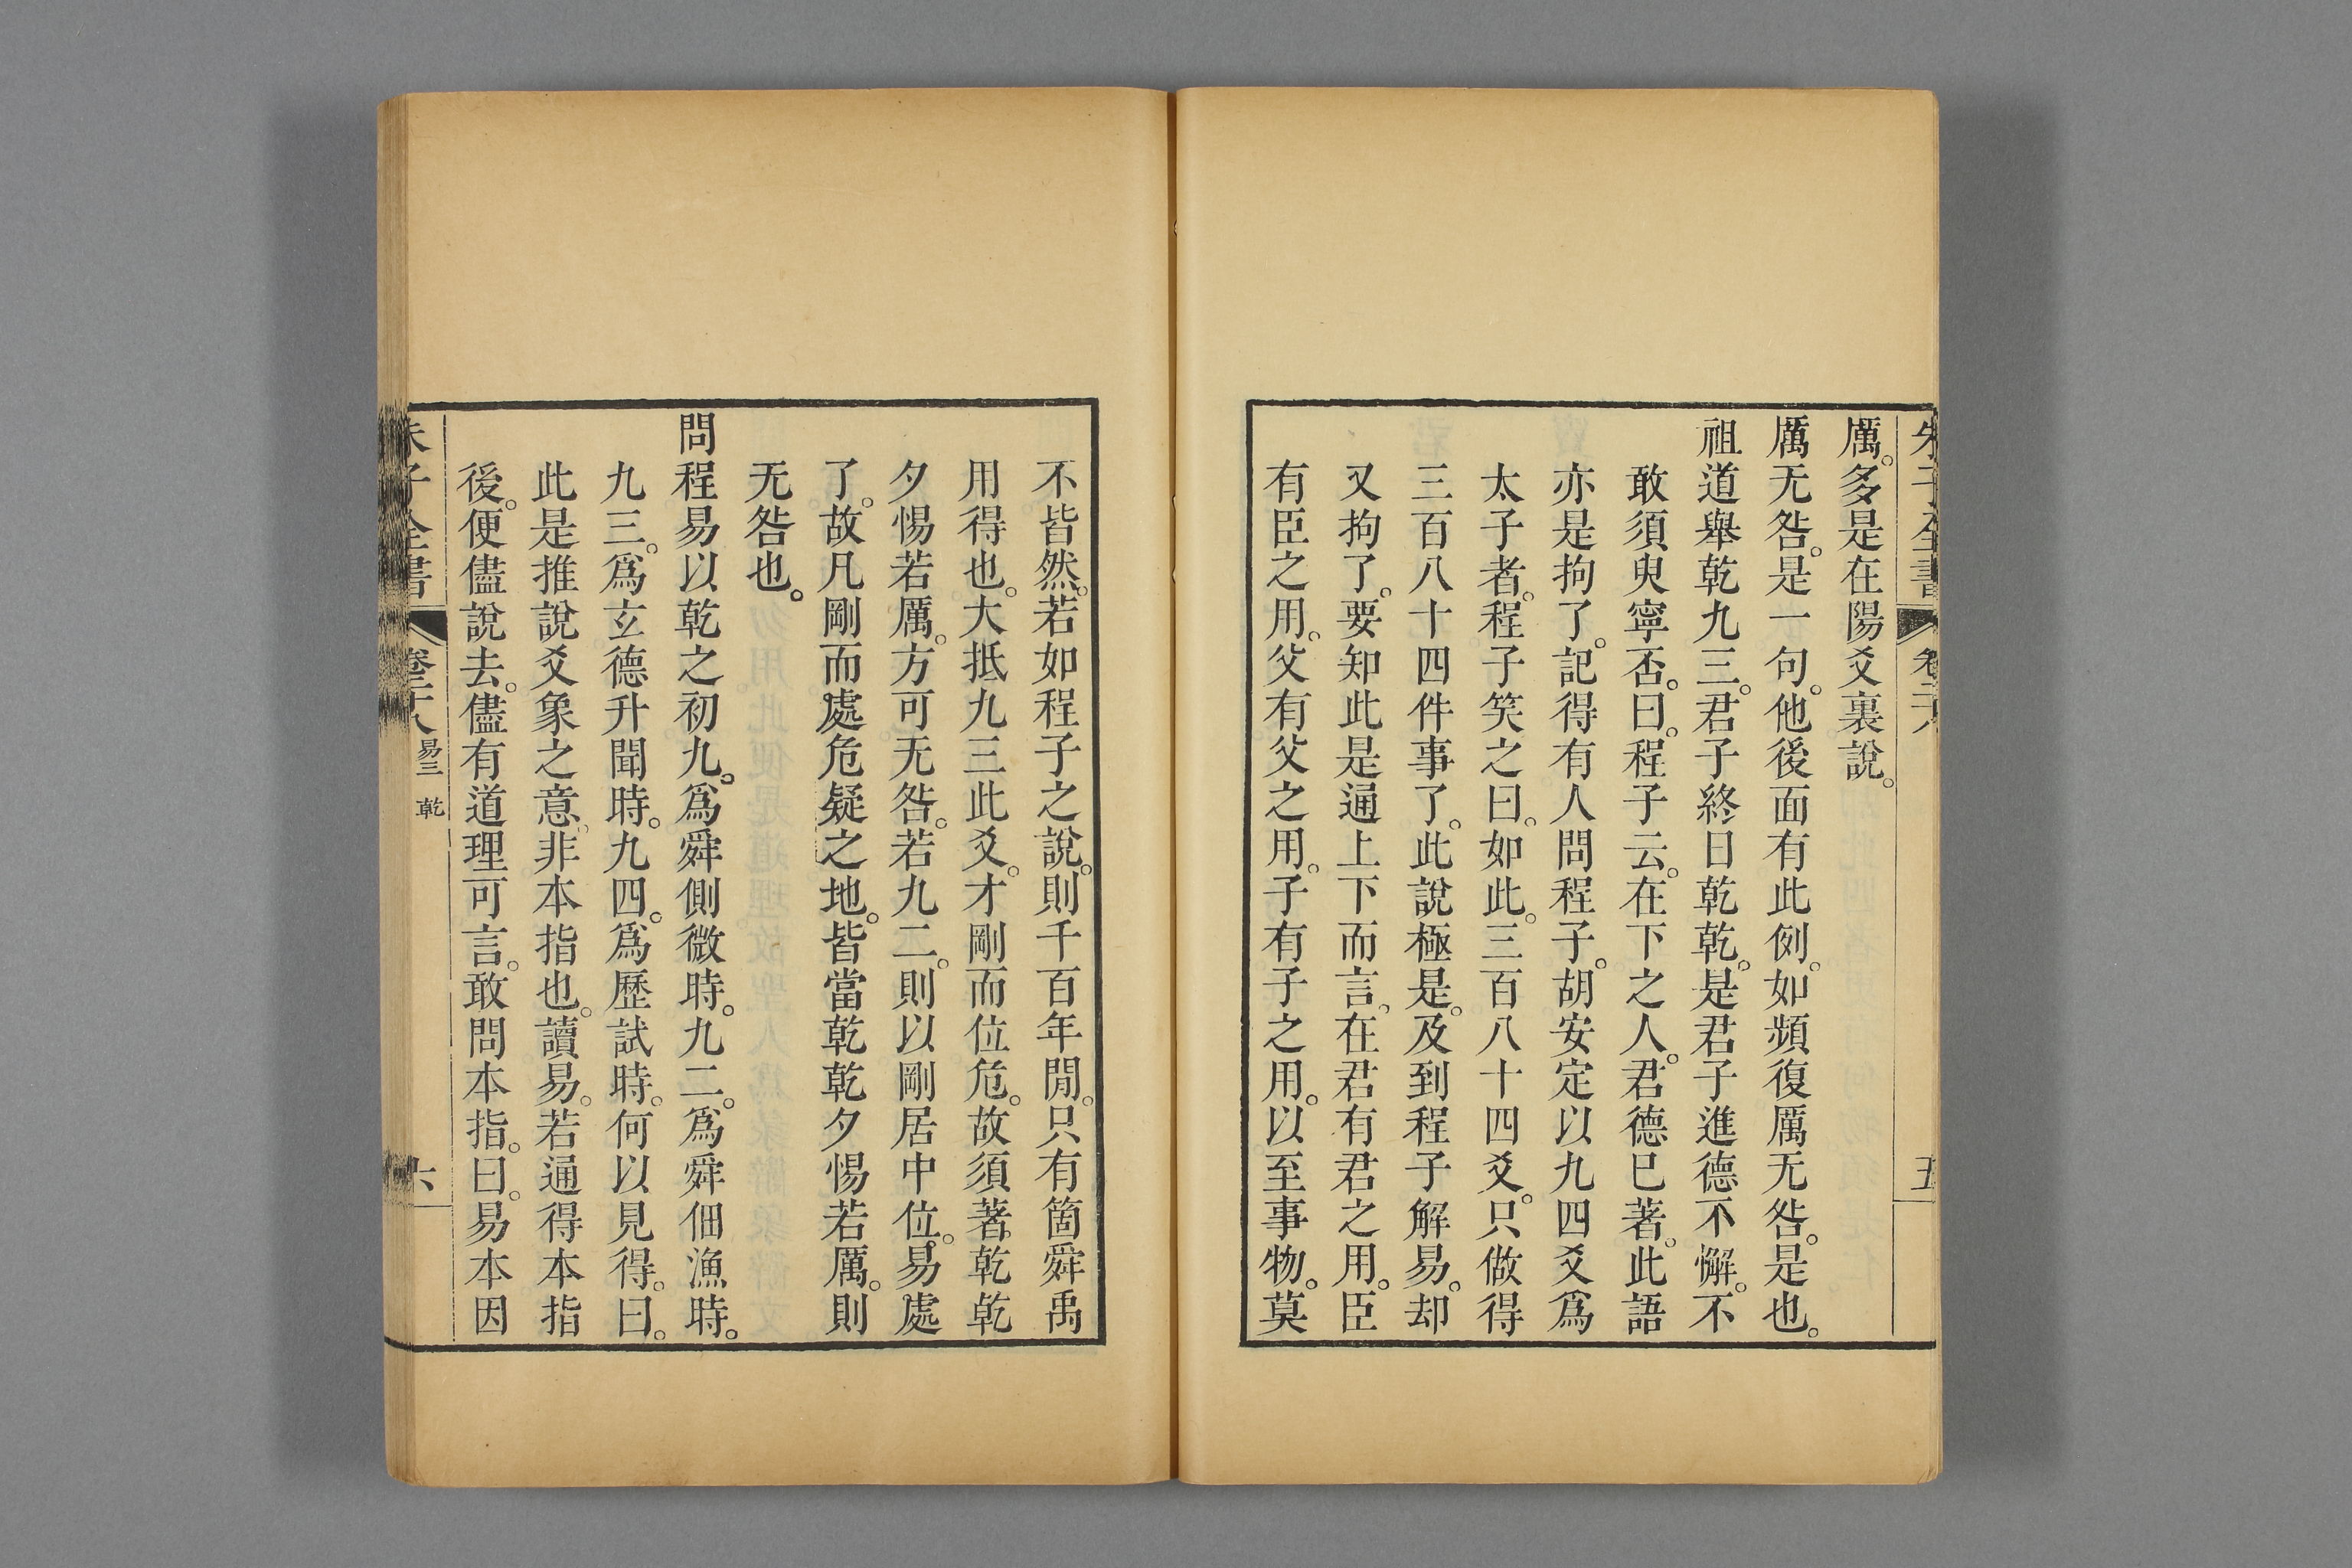 朱子全書 卷二十八 五
厲。多是在陽爻裏說。
厲无咎。是一句。他後面有此例。如頻復厲无咎。是也。
祖道舉乾九三。君子終日乾乾。是君子進德不懈。不
敢須臾寧否。曰。程子云。在下之人。君德已著。此語
亦是拘了。記得有人問程子。胡安定以九四爻爲
太子者。程子笑之曰。如此。三百八十四爻。只做得
三百八十四件事了。此說極是。及到程子解易。却
又拘了。要知此是通上下而言。在君有君之用。臣
有臣之用。父有父之用。子有子之用。以至事物。莫
不皆然。若如程子之說。則千百年閒。只有箇舜禹
用得也。大抵九三此爻。才剛而位危。故須著乾乾
夕惕若厲。方可无咎。若九二。則以剛居中位。易處
了。故凡剛而處危疑之地。皆當乾乾夕惕若厲。則
无咎也。
問程易以乾之初九。爲舜側微時。九二。爲舜佃漁時。
九三。爲玄德升聞時。九四。爲歷試時。何以見得。曰。
此是推說爻象之意。非本指也。讀易。若通得本指
後。便儘說去。儘有道理可言。敢問本指。曰。易本因
朱子全書 卷二十八 易三 乾 六